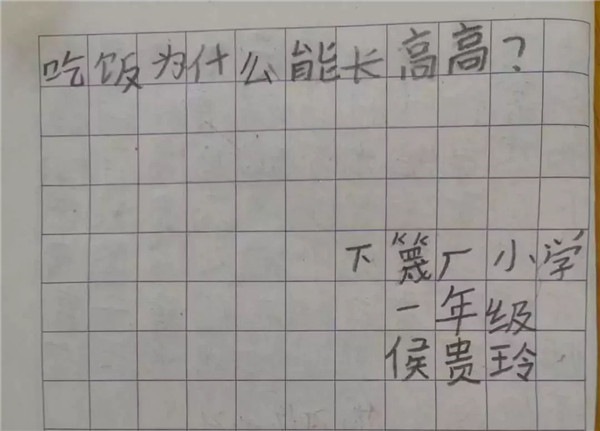 吃饭为什么能长高高？
下篾厂小学
一年级
侯贵玲